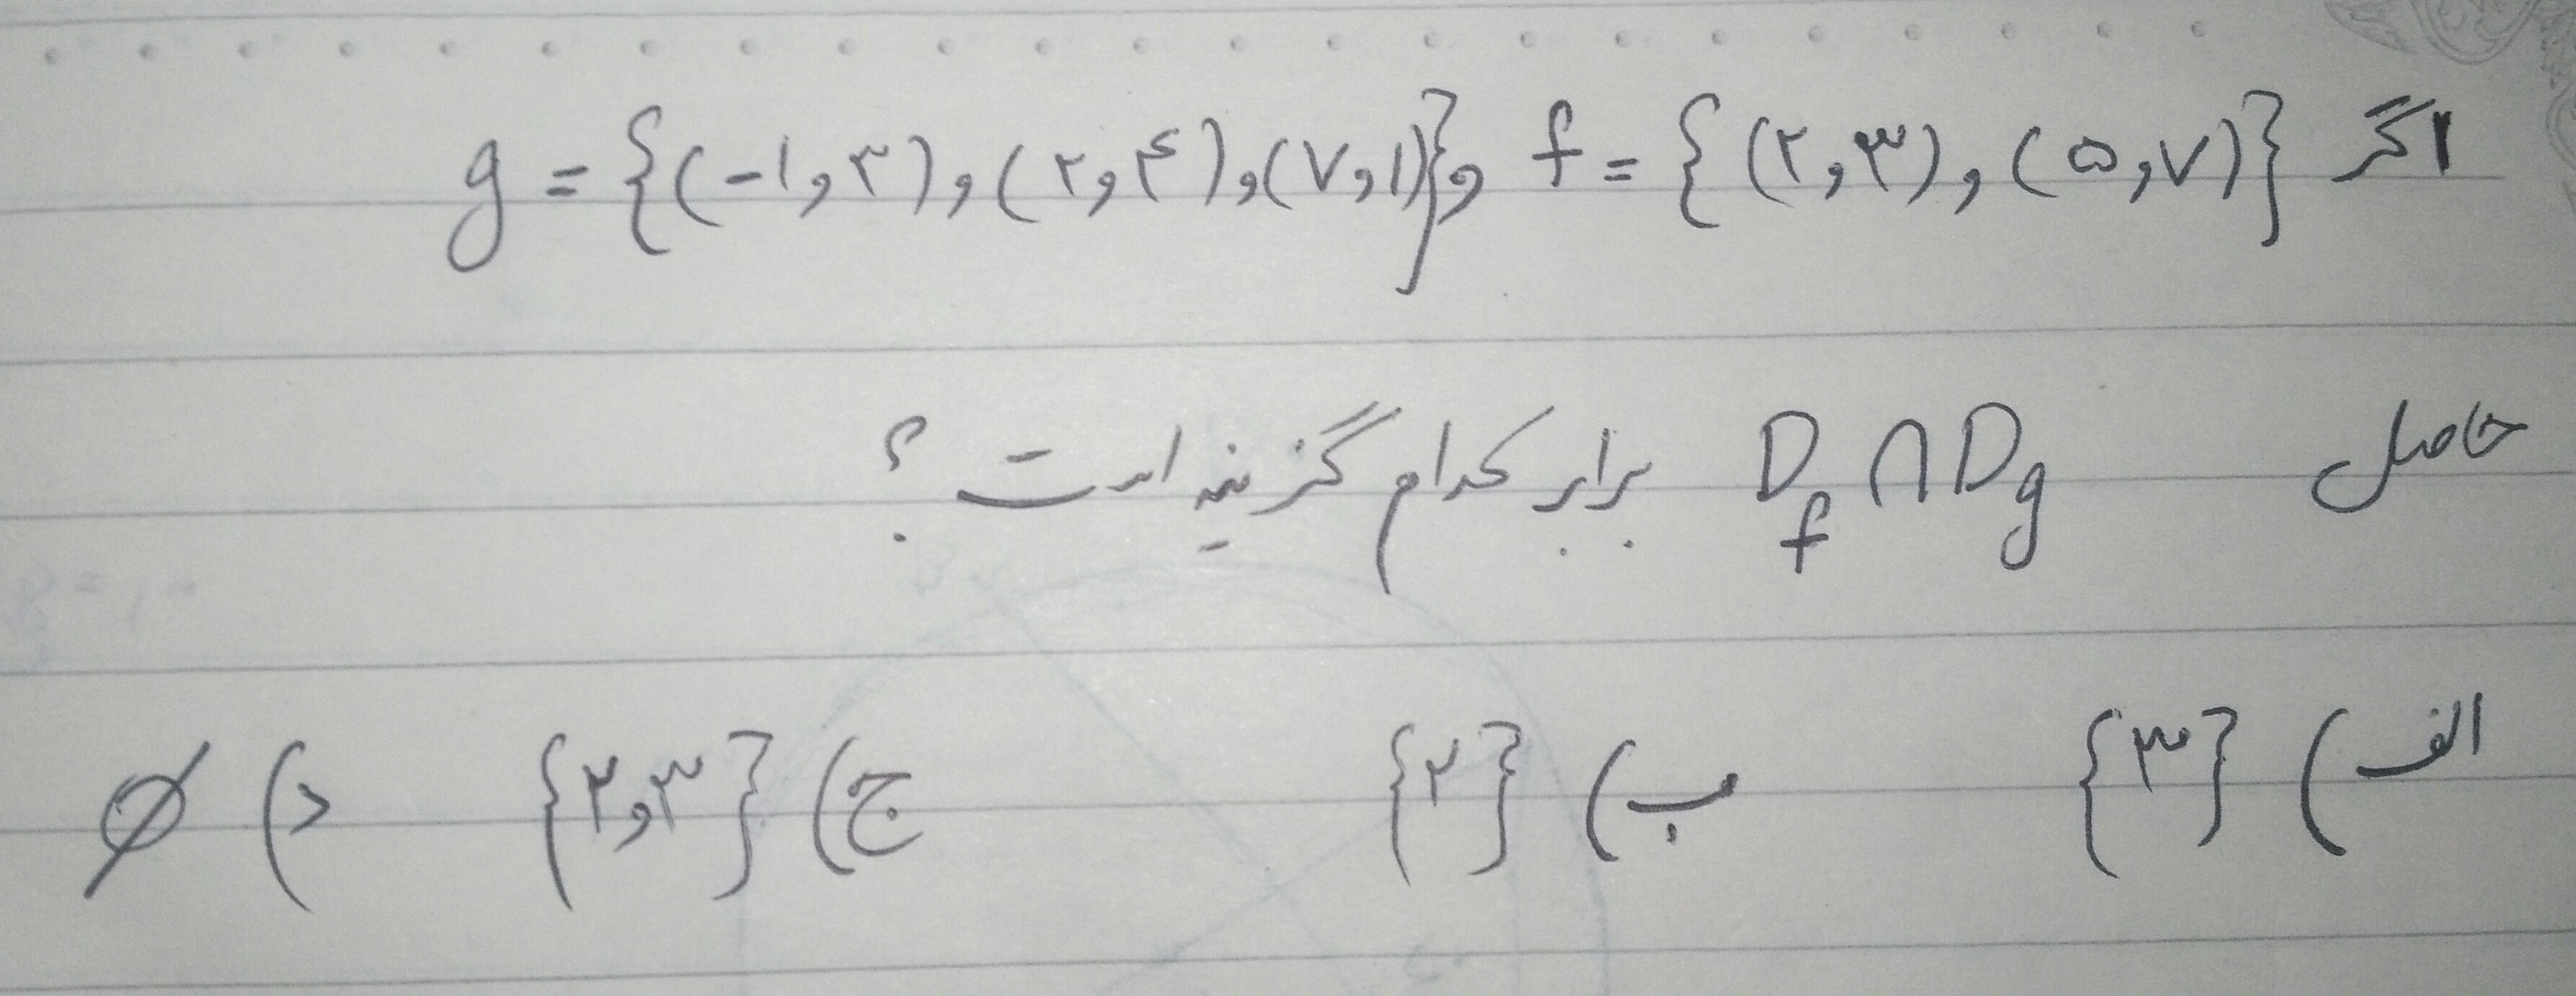 اگر f = {(۲,۳), (۵,۷)} و g = {(-۱,۳), (۲,۴), (۷,۱)}
حاصل D_f ∩ D_g برابر کدام گزینه است ؟
الف) {۳} ب) {۲} ج) {۲,۳} د) ∅